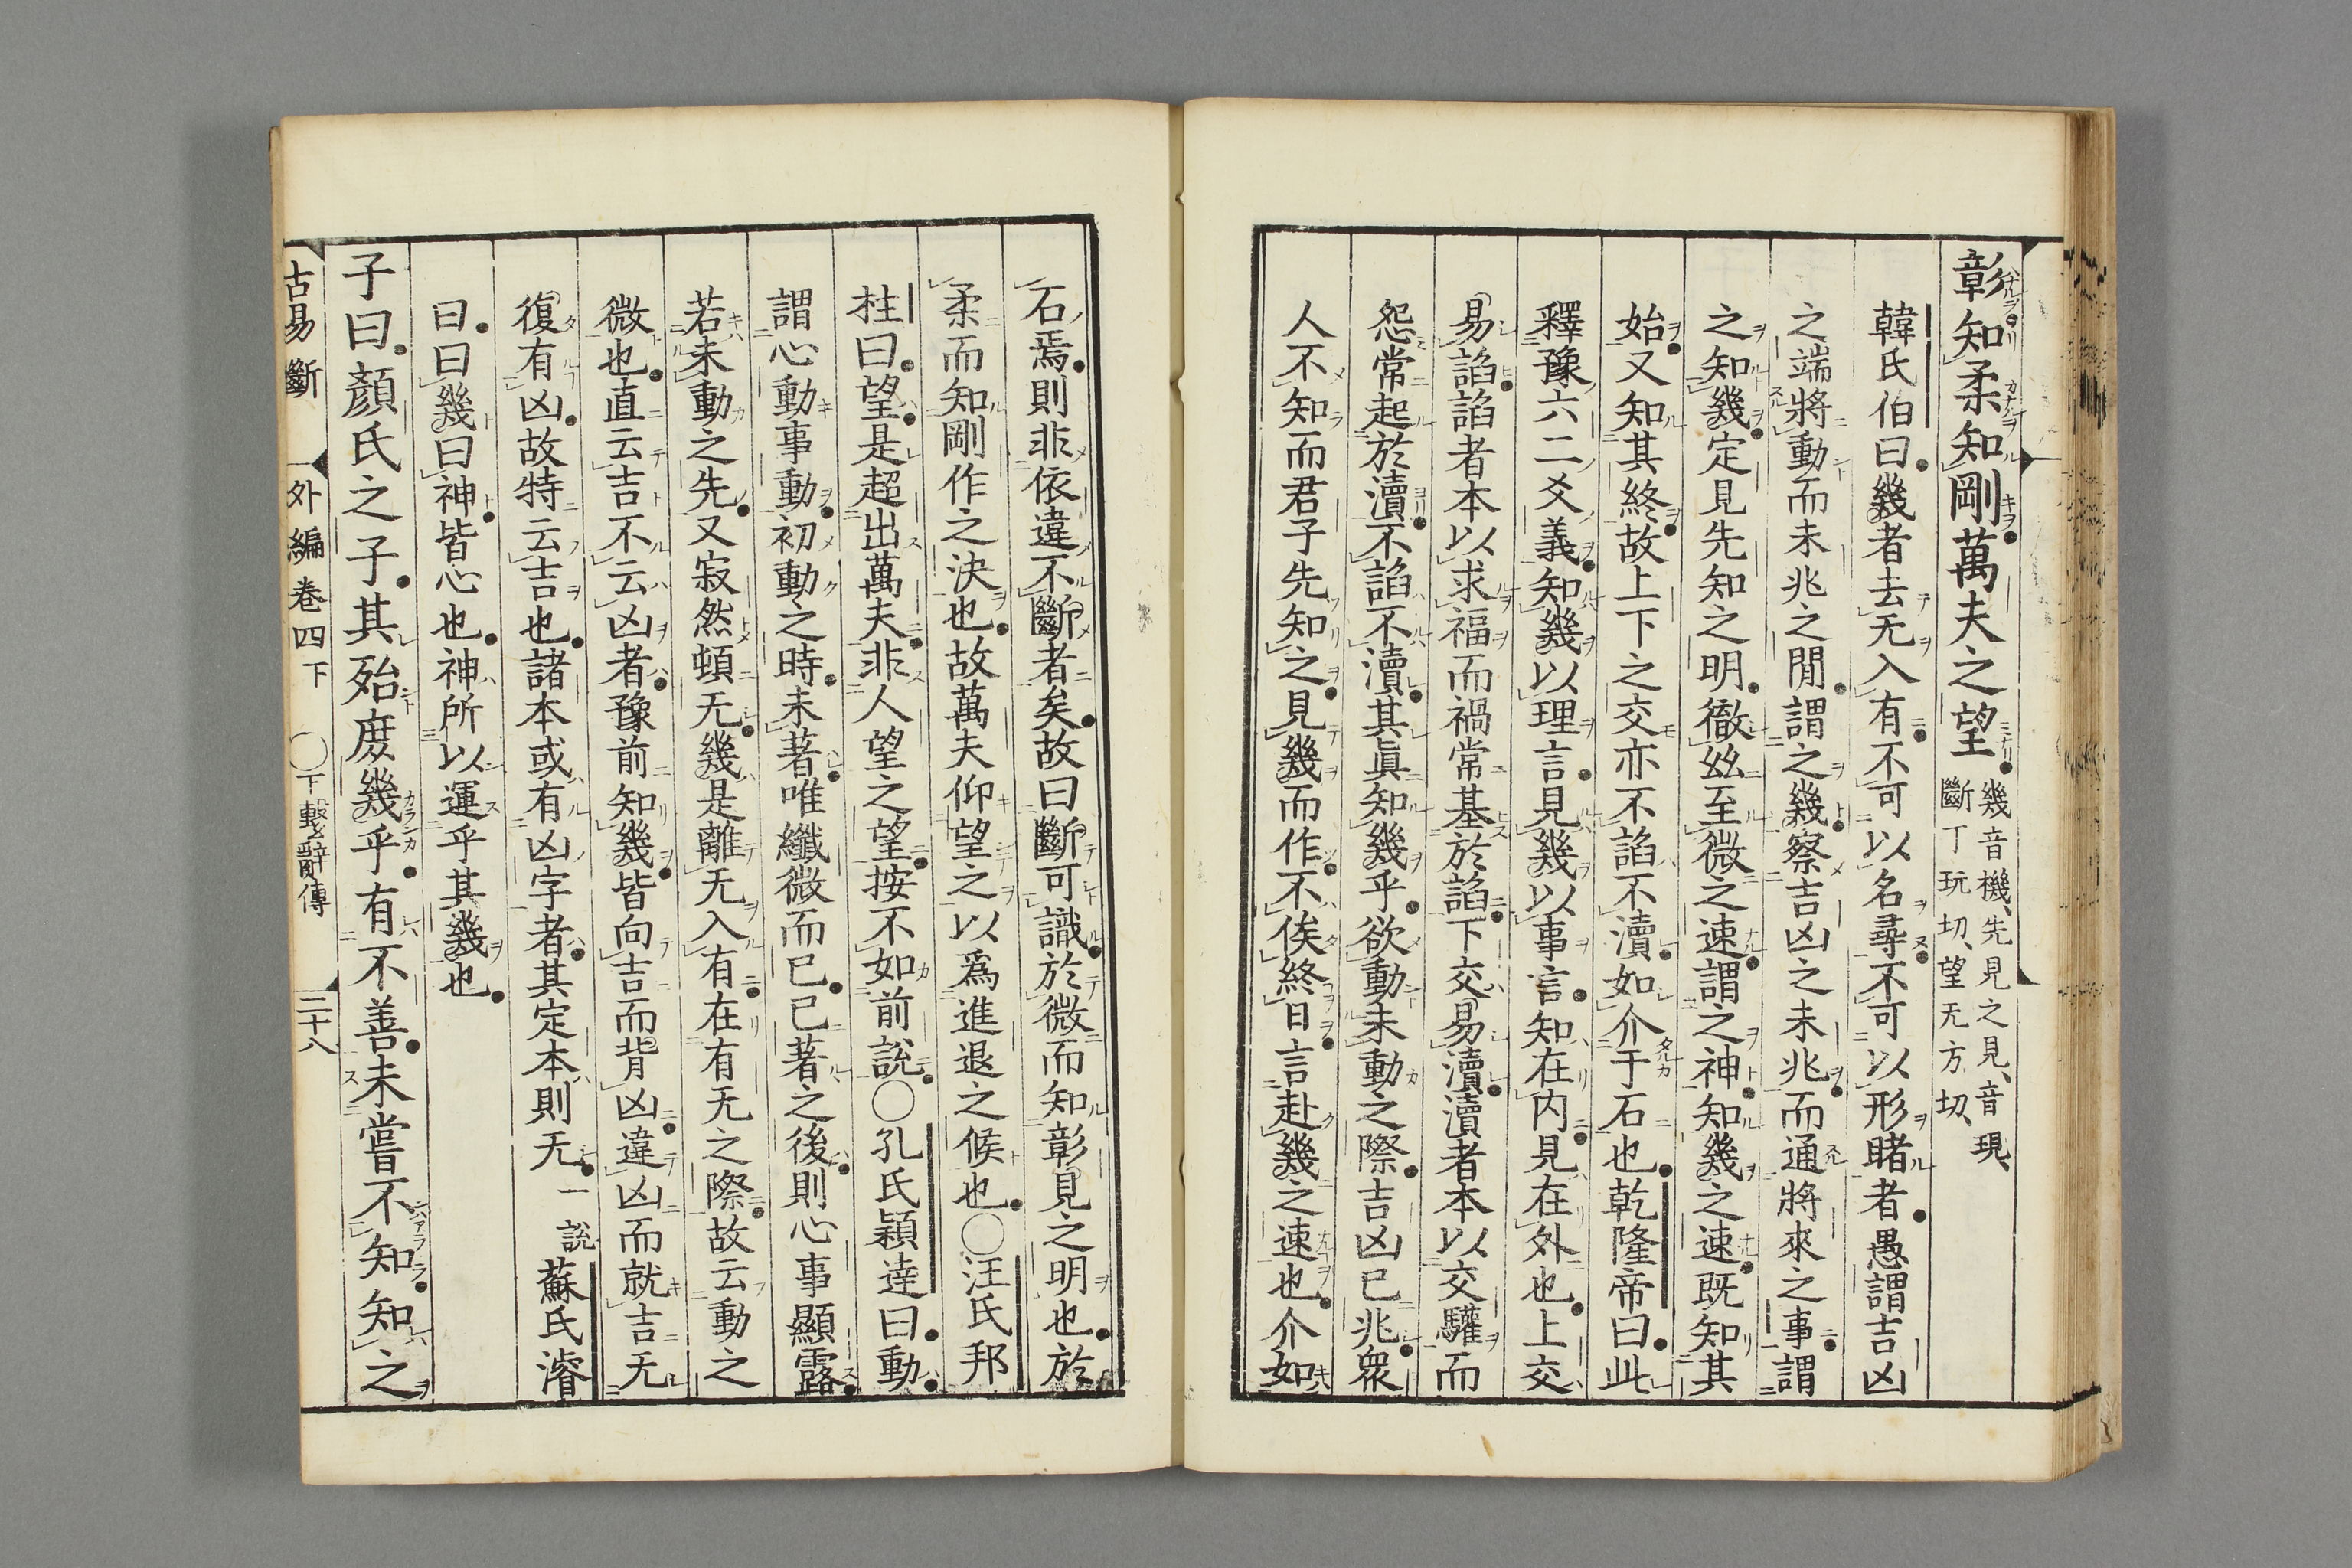 彰知柔知剛萬夫之望 幾音機、先見之見、音現、
斷丁玩切、望无方切、
韓氏伯曰幾者去无入有不可以名尋不可以形睹者愚謂吉凶
之端將動而未兆之閒謂之幾察吉凶之未兆而通將來之事謂
之知幾定見先知之明徹玆至微之速謂之神知幾之速既知其
始又知其終故上下之交亦不諂不瀆如介于石也乾隆帝曰此
釋豫六二爻義知幾以理言見幾以事言知在内見在外也上交
易諂諂者本以求福而禍常基於諂下交易瀆瀆者本以交驩而
怨常起於瀆不諂不瀆其眞知幾乎欲動未動之際吉凶已兆衆
人不知而君子先知之見幾而作不俟終日言赴幾之速也介如
石焉則非依違不斷者矣故曰斷可識於微而知彰見之明也於
柔而知剛作之決也故萬夫仰望之以爲進退之候也○汪氏邦
柱曰望是超出萬夫非人望之望按不如前說○孔氏穎達曰動
謂心動事動初動之時未著唯纖微而已已著之後則心事顯露
若未動之先又寂然頓无幾是離无入有在有无之際故云動之
微也直云吉不云凶者豫前知幾皆向吉而背凶違凶而就吉无
復有凶故特云吉也諸本或有凶字者其定本則无一說蘇氏濬
曰曰幾曰神皆心也神所以運乎其幾也
子曰顏氏之子其殆庶幾乎有不善未嘗不知知之
古易斷 外編卷四下 ○下繫辭傳 二十八